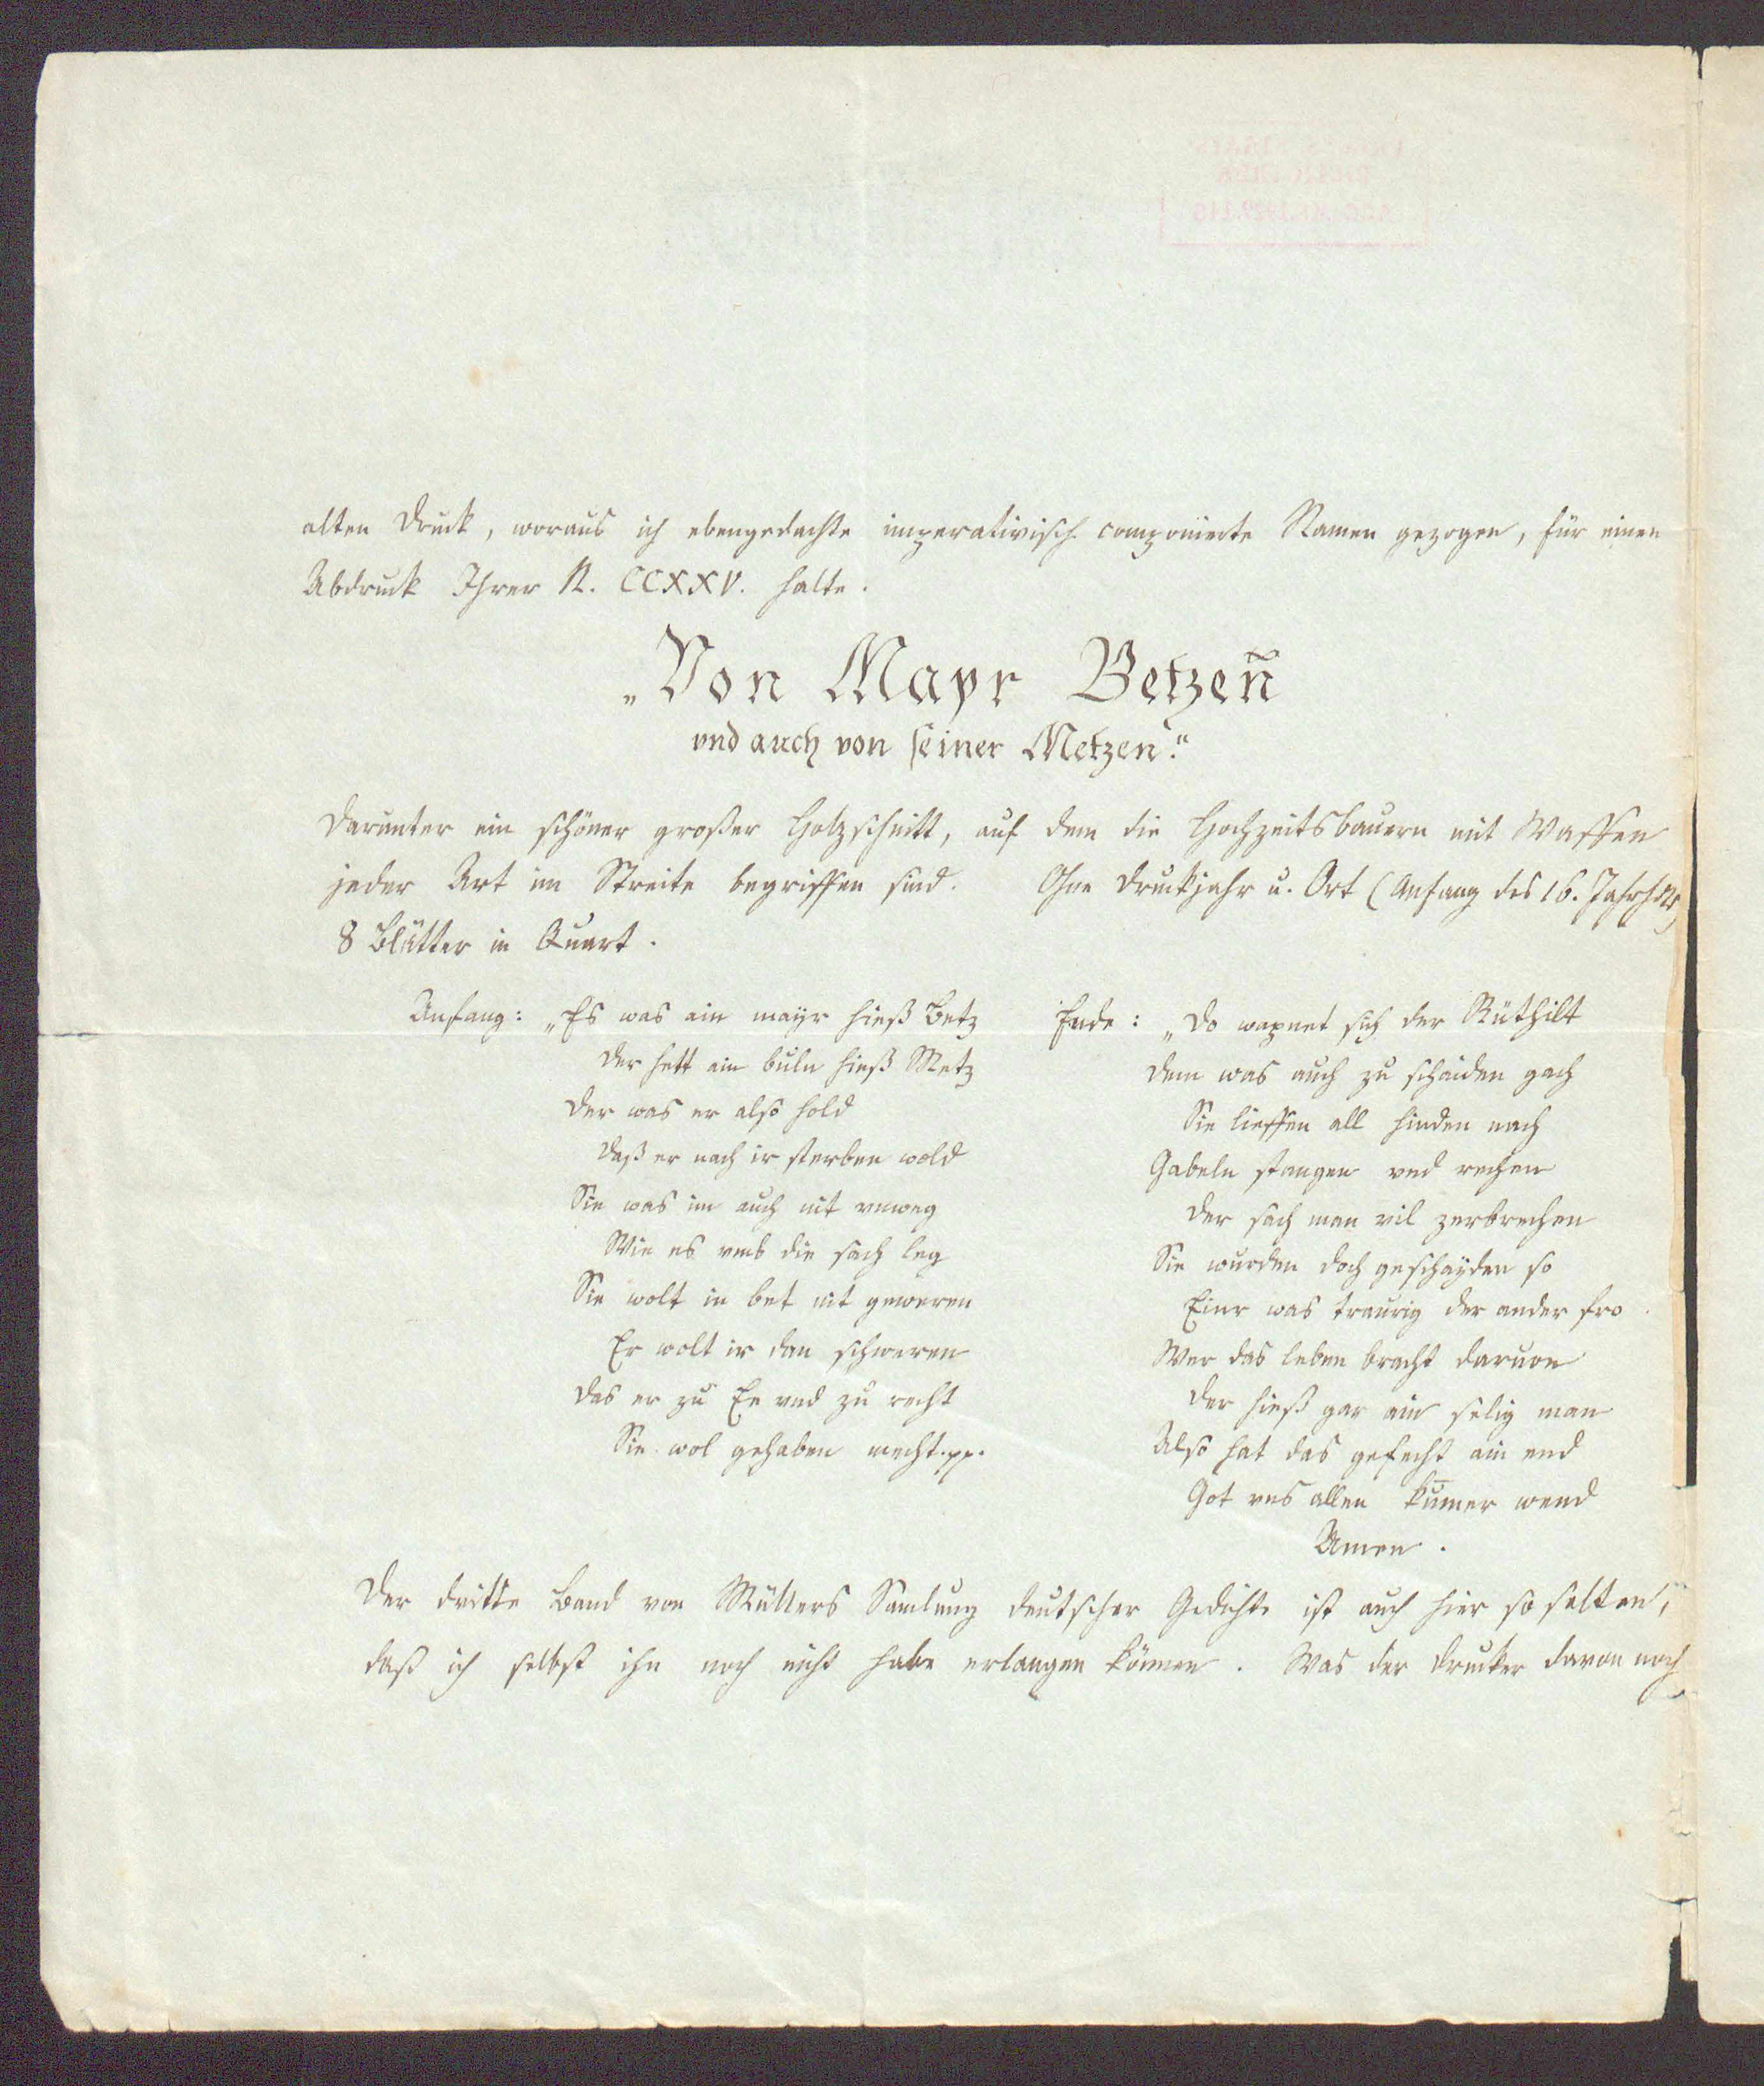 alten Druck, woraus ich ebengedachte imperativisch componierte Namen gezogen, für einen
Abdruck Ihrer N. CCXXV. halte.
„Von Mayr Betzen̄
vnd auch von seiner Metzen."
Darunter ein schöner großer Holzschnitt, auf dem die Hochzeitsbauern mit Waffen
jeder Art im Streite begriffen sind. Ohne Druckjahr u. Ort (Anfang des 16. Jahrhdts)
8 Blätter in Quart.
Anfang: „Es was ain mayr hieß Betz
Der hett ain buln hieß Metz
Der was er also hold
Daß er nach ir sterben wold
Sie was im auch nit vnweg
Wie es vmb die sach leg
Sie wolt in bet nit geweren
Er wolt ir dan schweren
Das er zu Ee vnd zu recht
Sie wol gehaben mecht. pp.
Ende: „Do wapnet sich der Rüthilt
Dem was auch zu schaiden gach
Sie lieffen all hinden nach
Gabeln stangen vnd rechen
Der sach man vil zerbrechen
Sie wurden doch geschayden so
Einr was traurig der ander fro
Wer das leben bracht daruon
Der hieß gar ain selig man
Also hat das gefecht ain end
Got vns allen kum̄er wend
Amen.
Der dritte Band von Müllers Samlung deutscher Gedichte ist auch hier so selten,
daß ich selbst ihn noch nicht habe erlangen können. Was der Drucker davon noch